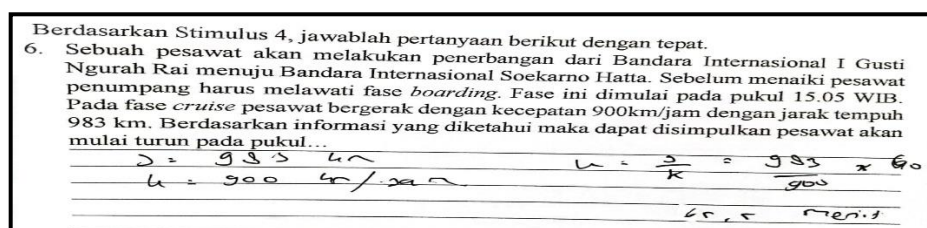 Berdasarkan Stimulus 4, jawablah pertanyaan berikut dengan tepat.
6. Sebuah pesawat akan melakukan penerbangan dari Bandara Internasional I Gusti
Ngurah Rai menuju Bandara Internasional Soekarno Hatta. Sebelum menaiki pesawat
penumpang harus melawati fase boarding. Fase ini dimulai pada pukul 15.05 WIB.
Pada fase cruise pesawat bergerak dengan kecepatan 900km/jam dengan jarak tempuh
983 km. Berdasarkan informasi yang diketahui maka dapat disimpulkan pesawat akan
mulai turun pada pukul...
= 983 km = = 983 × 60
= 900 km/jam k 900
menit